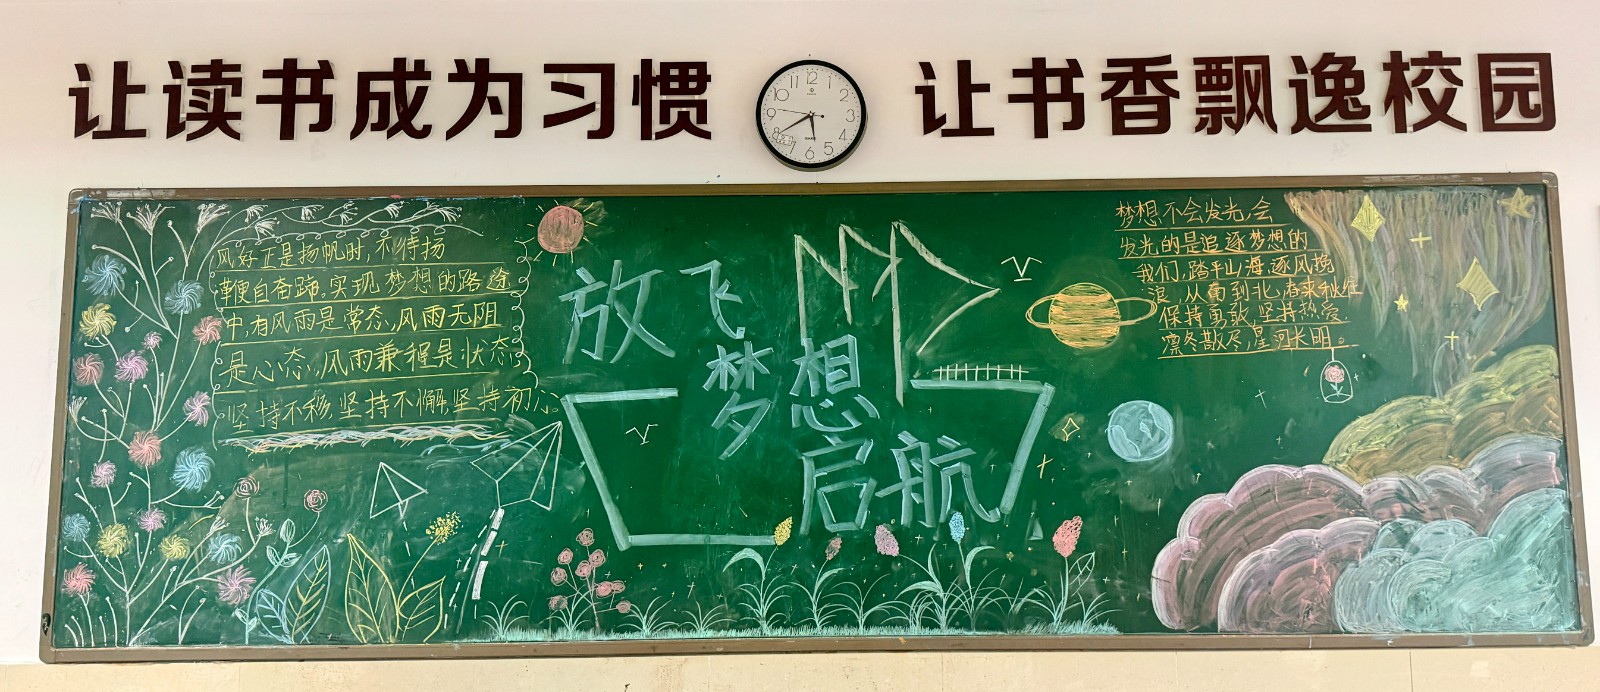 让读书成为习惯
让书香飘逸校园
12
11
1
10
2
9
3
8
4
7
5
6
风好正是扬帆时,不待扬
鞭自奋蹄。实现梦想的路途
中,有风雨是常态,风雨无阻
是心态,风雨兼程是状态,
坚持不移,坚持不懈,坚持初心。
放飞
梦想
启航
梦想不会发光,会
发光的是追逐梦想的
我们,踏平山海,逐风揽
浪,从南到北,春来秋往
保持勇敢,坚持热爱,
凛冬散尽,星河长明。